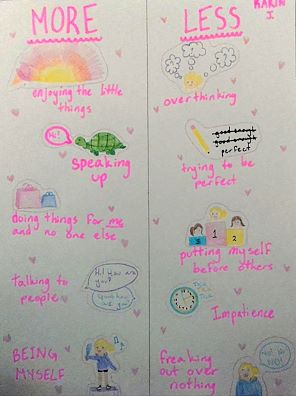 MORE
enjoying the little
things
Hi!
speaking
up
doing things for me
and no one else
talking to
people
Hi! How are
you?
BEING
MYSELF
LESS
KARIN
J.
overthinking
good enough
good enough
perfect
trying to be
perfect
3 1 2
putting myself
before others
Impatience
freaking
out over
nothing
NO!